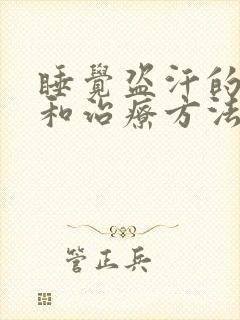 睡覺盜汗的
和治療方法
管正兵